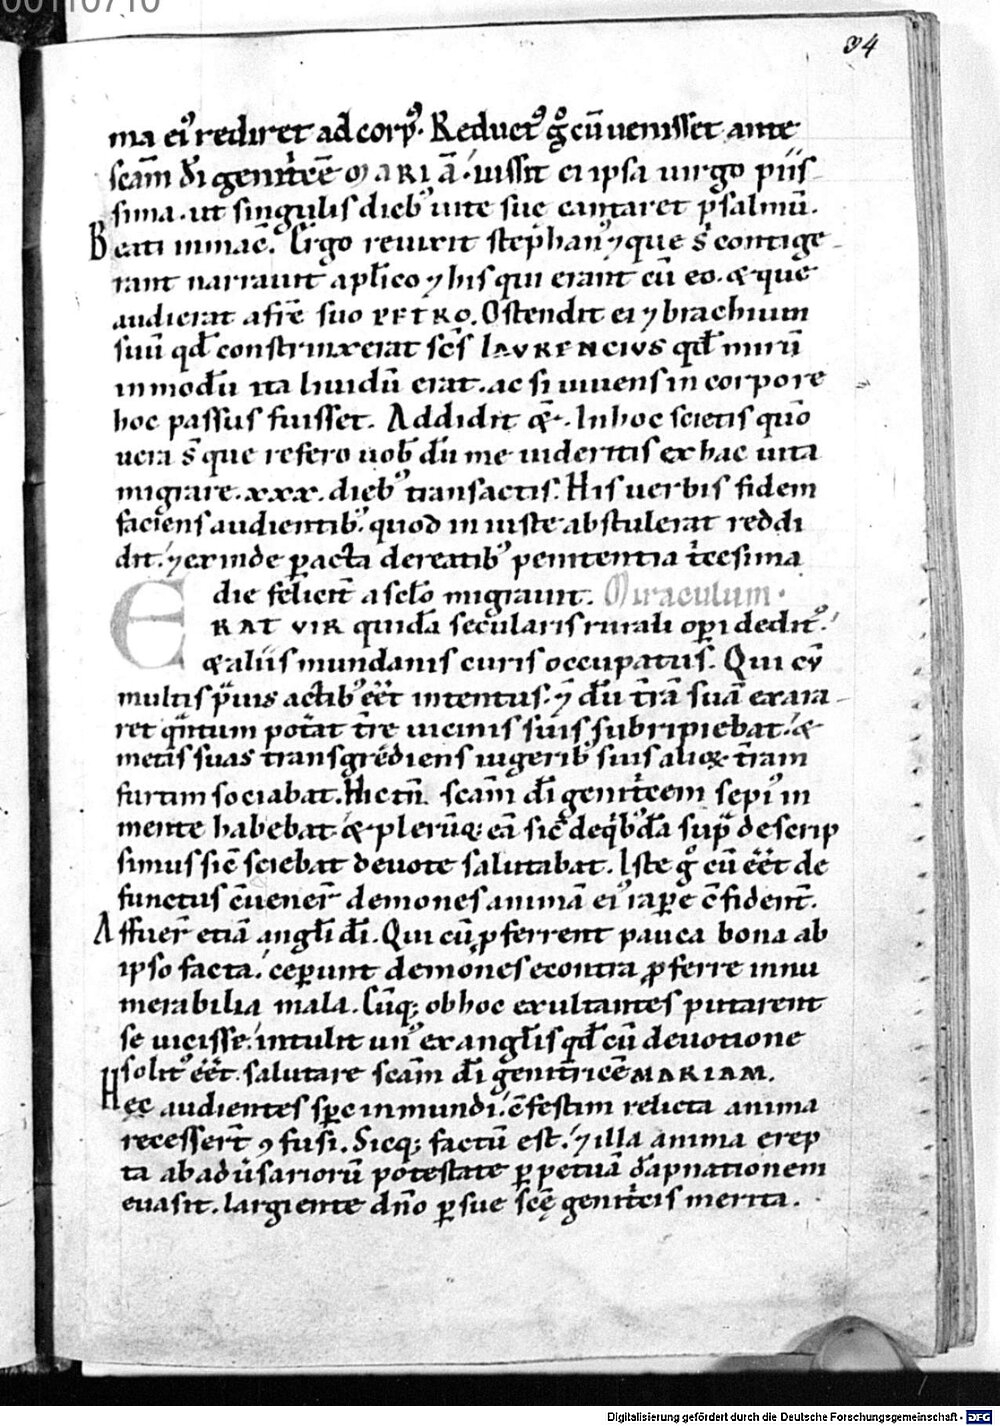 00110710
34
ma ei᷒ rediret ad corp᷒. Reduct᷒ gͦ cū uenisset ante
scām dī genitͥcē MARIĀ. iussit ei ipsa uirgo piis-
sima. ut singulis dieb᷒ uite sue cantaret psalmū.
Beati inmac̄. Ergo reuixit stephan᷒ ⁊ que s͛ contige-
rant narrauit aplico ⁊ his qui erant cū eo. & que
audierat a fr̄e suo PETRO. Ostendit ei ⁊ brachium
suū qd̄ constrinxerat scs̄ LAVRENCIVS qd̄ mirū
inmodū ita liuidū erat. ac si uiuens in corpore
hoc passus fuisset. Addidit &. In hoc scietis qm̄o
uera s͛ que refero uob̄ dū me uideritis ex hac uita
migrare. xxx. dieb᷒ transactis. His uerbis fidem
faciens audientib᷒. quod iniuste abstulerat reddi
dit. ⁊ exinde ꝑacta de reatib᷒ penitentia tͥcesima
die felicit̄ a sclo migrauit. Miraculum.
ERAT VIR quidā secularis rurali opi dedit᷒.
& aliis mundanis curis occupatus. Qui cū
multis pͣuis actib᷒ eēt intentus. ⁊ dū t̄rā suā exara-
ret qͣntum pot̄at t̄re uicinis suis subripiebat. &
metas suas transgrediens iugerib᷒ suis aliē t̄ram
furtim sociabat. Hic tn̄. scām dī genitͥcem sepi᷒ in
mente habebat & plerūq; eā sic̄ de qͥb᷒dā supͣ descrip
simus sic̄ sciebat deuote salutabat. Iste gͦ cū eēt de
functus c̄uener̄ demones animā ei᷒ raꝑe c̄fident̄.
Affuer̄ etiā angli dī. Qui cū ꝓferrent pauca bona ab
ipso facta. ceꝑunt demones econtra ꝓferre innu
merabilia mala. Cūq; ob hoc exultantes putarent
se uicisse. intulit un᷒ ex anglis qd̄ cū deuotione
solit᷒ eēt salutare scām dī genitricē MARIAM.
Hęc audientes spc̄ inmundi. c̄festim relicta anima
recessert̄ ꝯfusi. Sicq; factū est. ⁊ illa anima erep
ta ab adūsariorū potestate ꝑpetuā dāpnationem
euasit. largiente dn̄o ꝑ sue scę̄ genitͥcis merita.
Digitalisierung gefördert durch die Deutsche Forschungsgemeinschaft - DFG